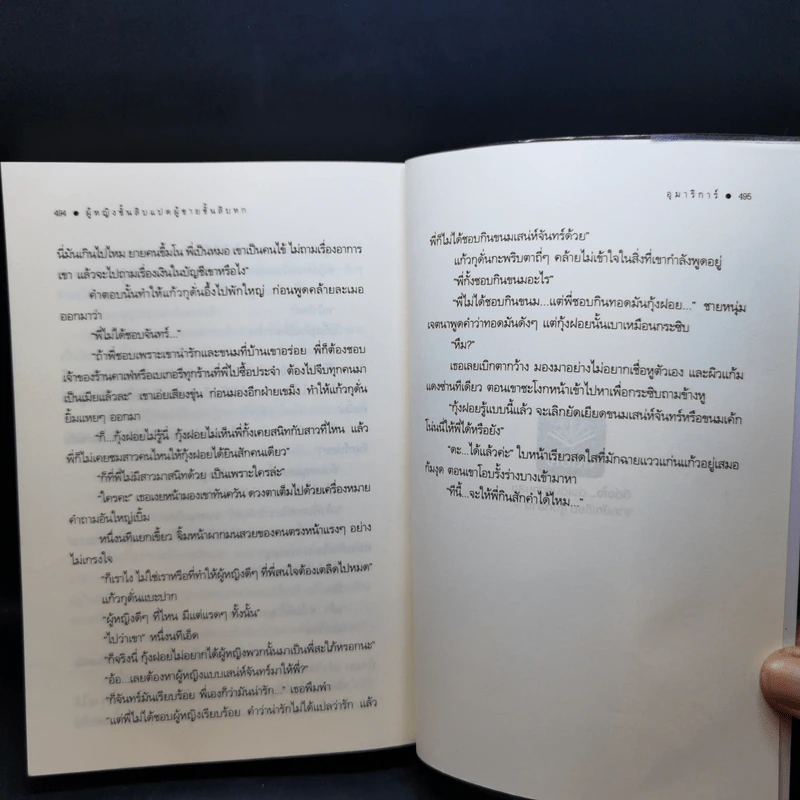 494 ● ผู้หญิงชั้นสิบแปดผู้ชายชั้นสิบหก
นี่มันเกินไปไหม ยายคนขี้มโน พี่เป็นหมอ เขาเป็นคนไข้ ไม่ถามเรื่องอาการ
เขา แล้วจะไปถามเรื่องเงินในบัญชีเขาหรือไง"
คำตอบนั้นทำให้แก้วกุดั่นอึ้งไปพักใหญ่ ก่อนพูดคล้ายละเมอ
ออกมาว่า
"พี่ไม่ได้ชอบจันทร์..."
"ถ้าพี่ชอบเพราะเขาน่ารักและขนมที่บ้านเขาอร่อย พี่ก็ต้องชอบ
เจ้าของร้านคาเฟ่หรือเบเกอรีทุกร้านที่พี่ไปซื้อประจำ ต้องไปจีบทุกคนมา
เป็นเมียแล้วละ" เขาเอ่ยเสียงขุ่น ก่อนมองอีกฝ่ายเขม็ง ทำให้แก้วกุดั่น
ยิ้มแหยๆ ออกมา
"ก็...กุ้งฝอยไม่รู้นี่ กุ้งฝอยไม่เห็นพี่กั้งเคยสนิทกับสาวที่ไหน แล้ว
พี่ก็ไม่เคยชมสาวคนไหนให้กุ้งฝอยได้ยินสักคนเดียว"
"ก็ที่พี่ไม่มีสาวมาสนิทด้วย เป็นเพราะใครล่ะ"
"ใครคะ" เธอเงยหน้ามองเขาทันควัน ดวงตาเต็มไปด้วยเครื่องหมาย
คำถามอันใหญ่เบิ้ม
หนึ่งนทีแยกเขี้ยว จิ้มหน้าผากมนสวยของคนตรงหน้าแรงๆ อย่าง
ไม่เกรงใจ
"ก็เราไง ไม่ใช่เราหรือที่ทำให้ผู้หญิงดีๆ ที่พี่สนใจต้องเตลิดไปหมด"
แก้วกุดั่นแบะปาก
"ผู้หญิงดีๆ ที่ไหน มีแต่แรดๆ ทั้งนั้น"
"ไปว่าเขา" หนึ่งนทีเอ็ด
"ก็จริงนี่ กุ้งฝอยไม่อยากได้ผู้หญิงพวกนั้นมาเป็นพี่สะใภ้หรอกนะ"
"อ้อ...เลยต้องหาผู้หญิงแบบเสน่ห์จันทร์มาให้พี่?"
"ก็จันทร์มันเรียบร้อย พี่เองก็ว่ามันน่ารัก..." เธอพึมพำ
"แต่พี่ไม่ได้ชอบผู้หญิงเรียบร้อย คำว่าน่ารักไม่ได้แปลว่ารัก แล้ว
อุมาริการ์ ● 495
พี่ก็ไม่ได้ชอบกินขนมเสน่ห์จันทร์ด้วย"
แก้วกุดั่นกะพริบตาถี่ๆ คล้ายไม่เข้าใจในสิ่งที่เขากำลังพูดอยู่
"พี่กั้งชอบกินขนมอะไร"
"พี่ไม่ได้ชอบกินขนม...แต่พี่ชอบกินทอดมันกุ้งฝอย..." ชายหนุ่ม
เจตนาพูดคำว่าทอดมันดังๆ แต่กุ้งฝอยนั้นเบาเหมือนกระซิบ
"หืม?"
เธอเลยเบิกตากว้าง มองมาอย่างไม่อยากเชื่อหูตัวเอง และผิวแก้ม
แดงซ่านทีเดียว ตอนเขาชะโงกหน้าเข้าไปหาเพื่อกระซิบถามข้างหู
"กุ้งฝอยรู้แบบนี้แล้ว จะเลิกยัดเยียดขนมเสน่ห์จันทร์หรือขนมเค้ก
โน่นนี่ให้พี่ได้หรือยัง"
"ดะ...ได้แล้วค่ะ" ใบหน้าเรียวสดใสที่มักฉายแววแก่นแก้วอยู่เสมอ
ก้มงุด ตอนเขาโอบรั้งร่างบางเข้ามาหา
"ทีนี้...จะให้พี่กินสักคำได้ไหม..."